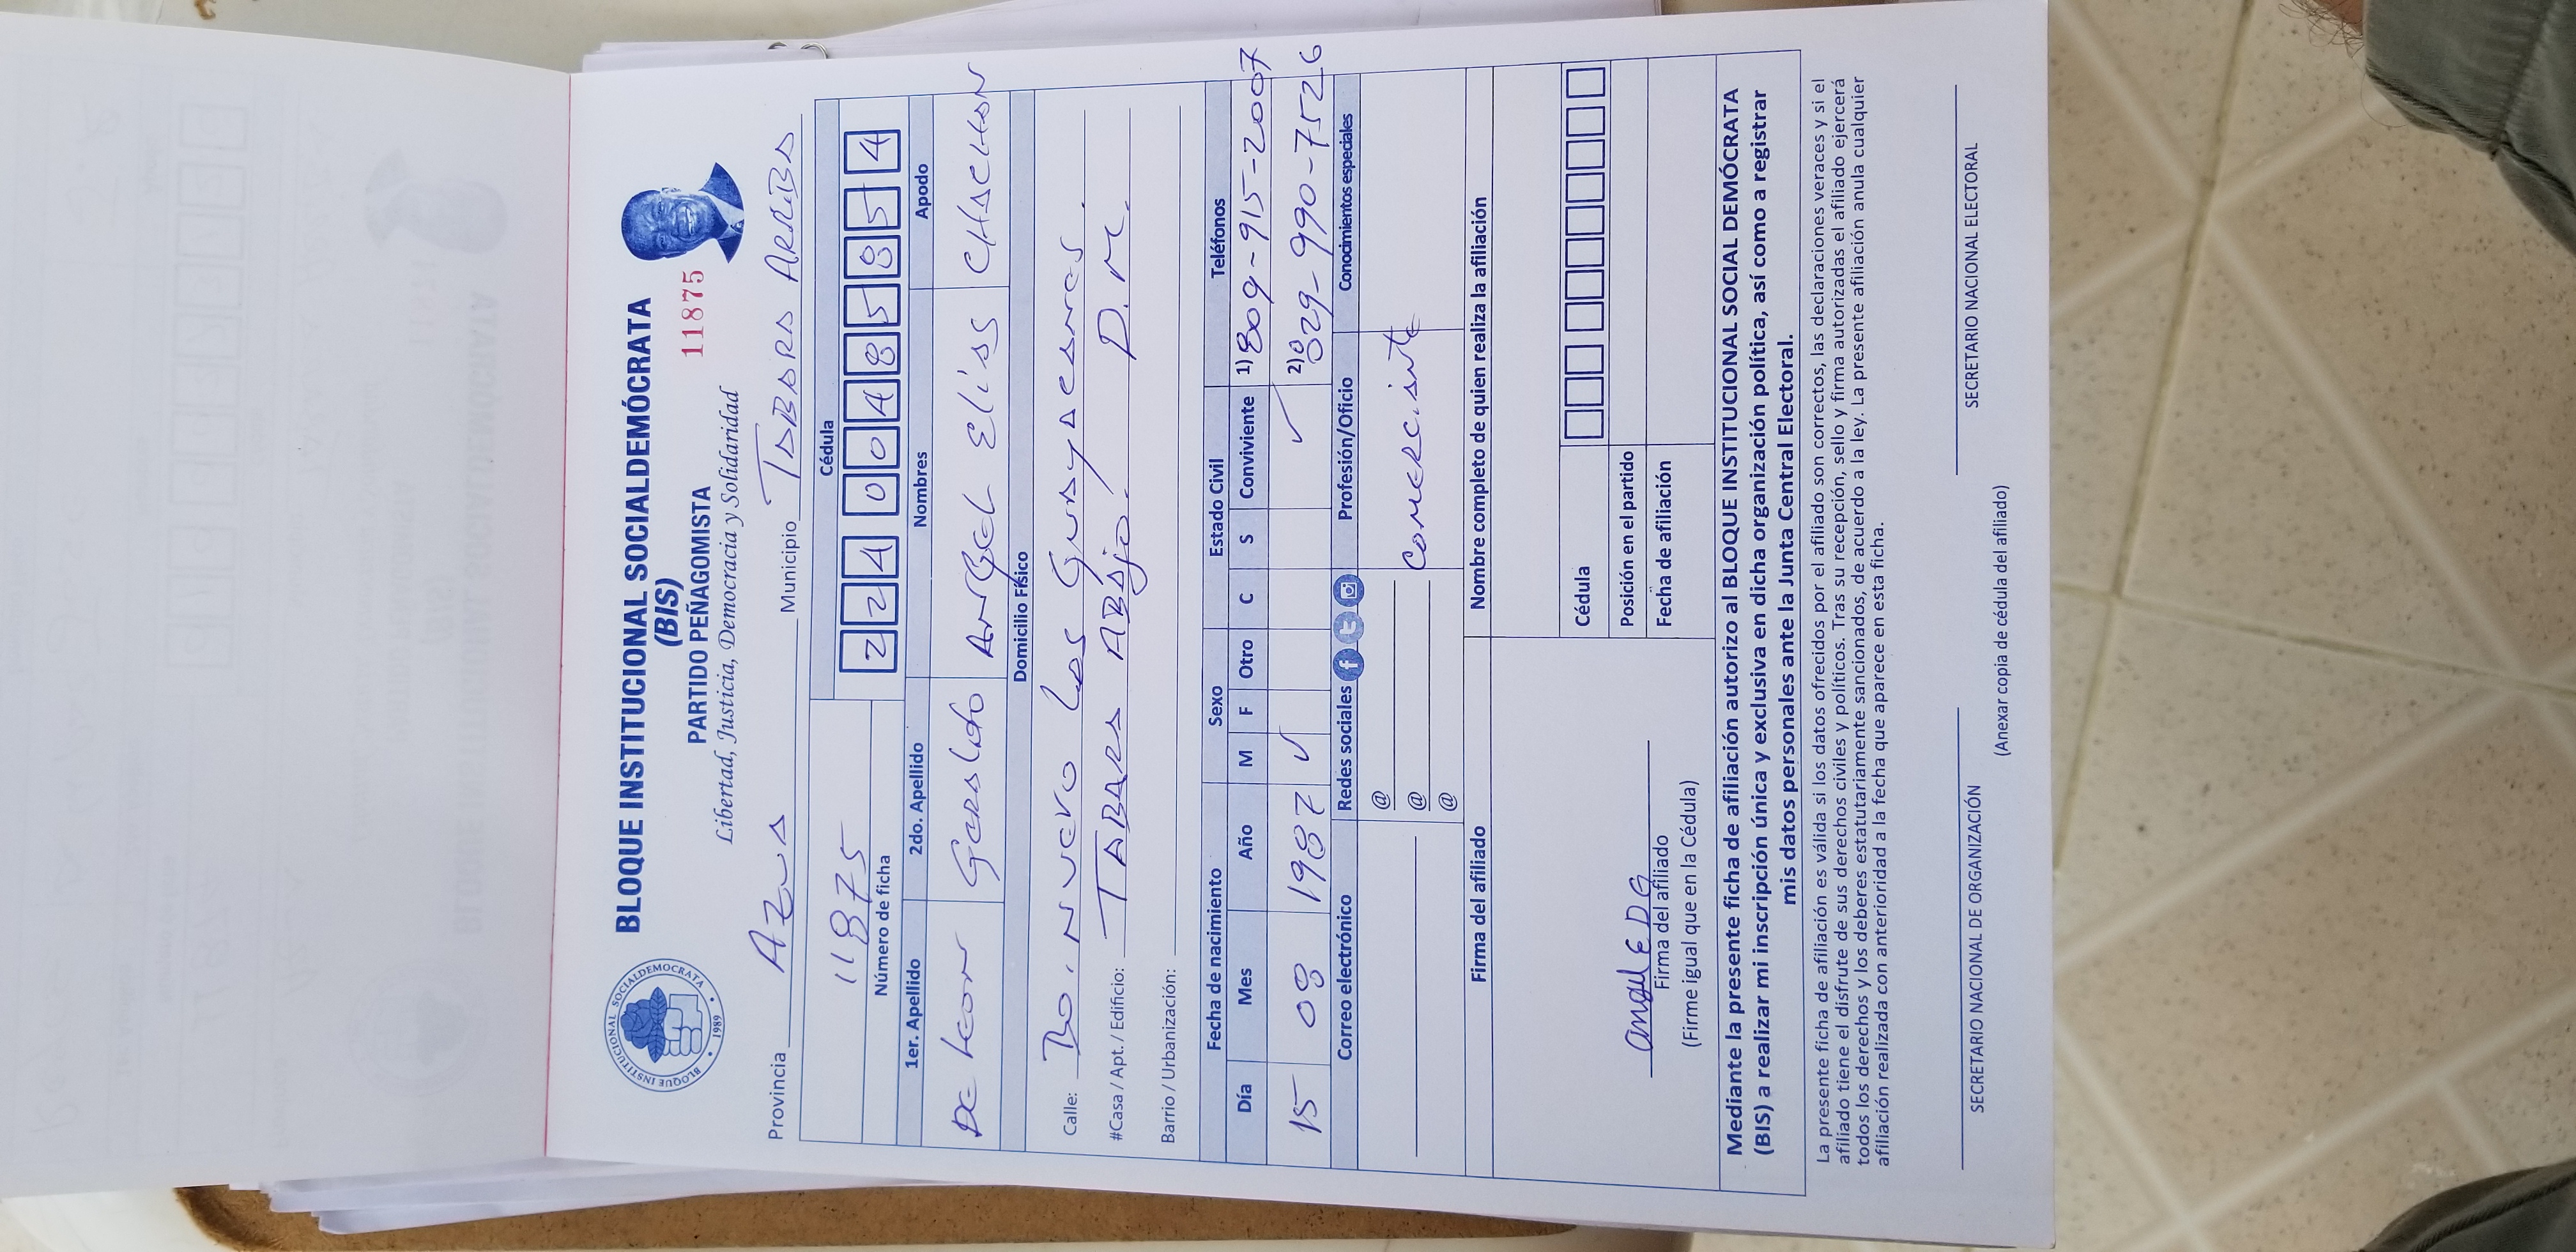 BLOQUE INSTITUCIONAL SOCIALDEMÓCRATA
(BIS)
PARTIDO PEÑAGOMISTA
11875
Libertad, Justicia, Democracia y Solidaridad
BLOQUE INSTITUCIONAL SOCIALDEMOCRATA
1989
Provincia Azua Municipio Tabara Arriba
11875
Número de ficha
Cédula
224 0048585 4
1er. Apellido 2do. Apellido Nombres Apodo
De Leon Geraldo Angel Elias Chachon
Domicilio Físico
Calle: Bo. Nuevo Los Guayacanes.
#Casa / Apt. / Edificio: Tabara Abajo. D.M.
Barrio / Urbanización:
Fecha de nacimiento Sexo Estado Civil Teléfonos
Día Mes Año M F Otro C S Conviviente 1) 809-915-2007
15 08 1987 ✓ ✓ 2) 829-990-7526
Correo electrónico Redes sociales Profesión/Oficio Conocimientos especiales
@
@
@
Comerciante
Firma del afiliado Nombre completo de quien realiza la afiliación
Cédula
Posición en el partido
Fecha de afiliación
angel E D G
Firma del afiliado
(Firme igual que en la Cédula)
Mediante la presente ficha de afiliación autorizo al BLOQUE INSTITUCIONAL SOCIAL DEMÓCRATA
(BIS) a realizar mi inscripción única y exclusiva en dicha organización política, así como a registrar
mis datos personales ante la Junta Central Electoral.
La presente ficha de afiliación es válida si los datos ofrecidos por el afiliado son correctos, las declaraciones veraces y si el
afiliado tiene el disfrute de sus derechos civiles y políticos. Tras su recepción, sello y firma autorizadas el afiliado ejercerá
todos los derechos y los deberes estatutariamente sancionados, de acuerdo a la ley. La presente afiliación anula cualquier
afiliación realizada con anterioridad a la fecha que aparece en esta ficha.
SECRETARIO NACIONAL DE ORGANIZACIÓN SECRETARIO NACIONAL ELECTORAL
(Anexar copia de cédula del afiliado)